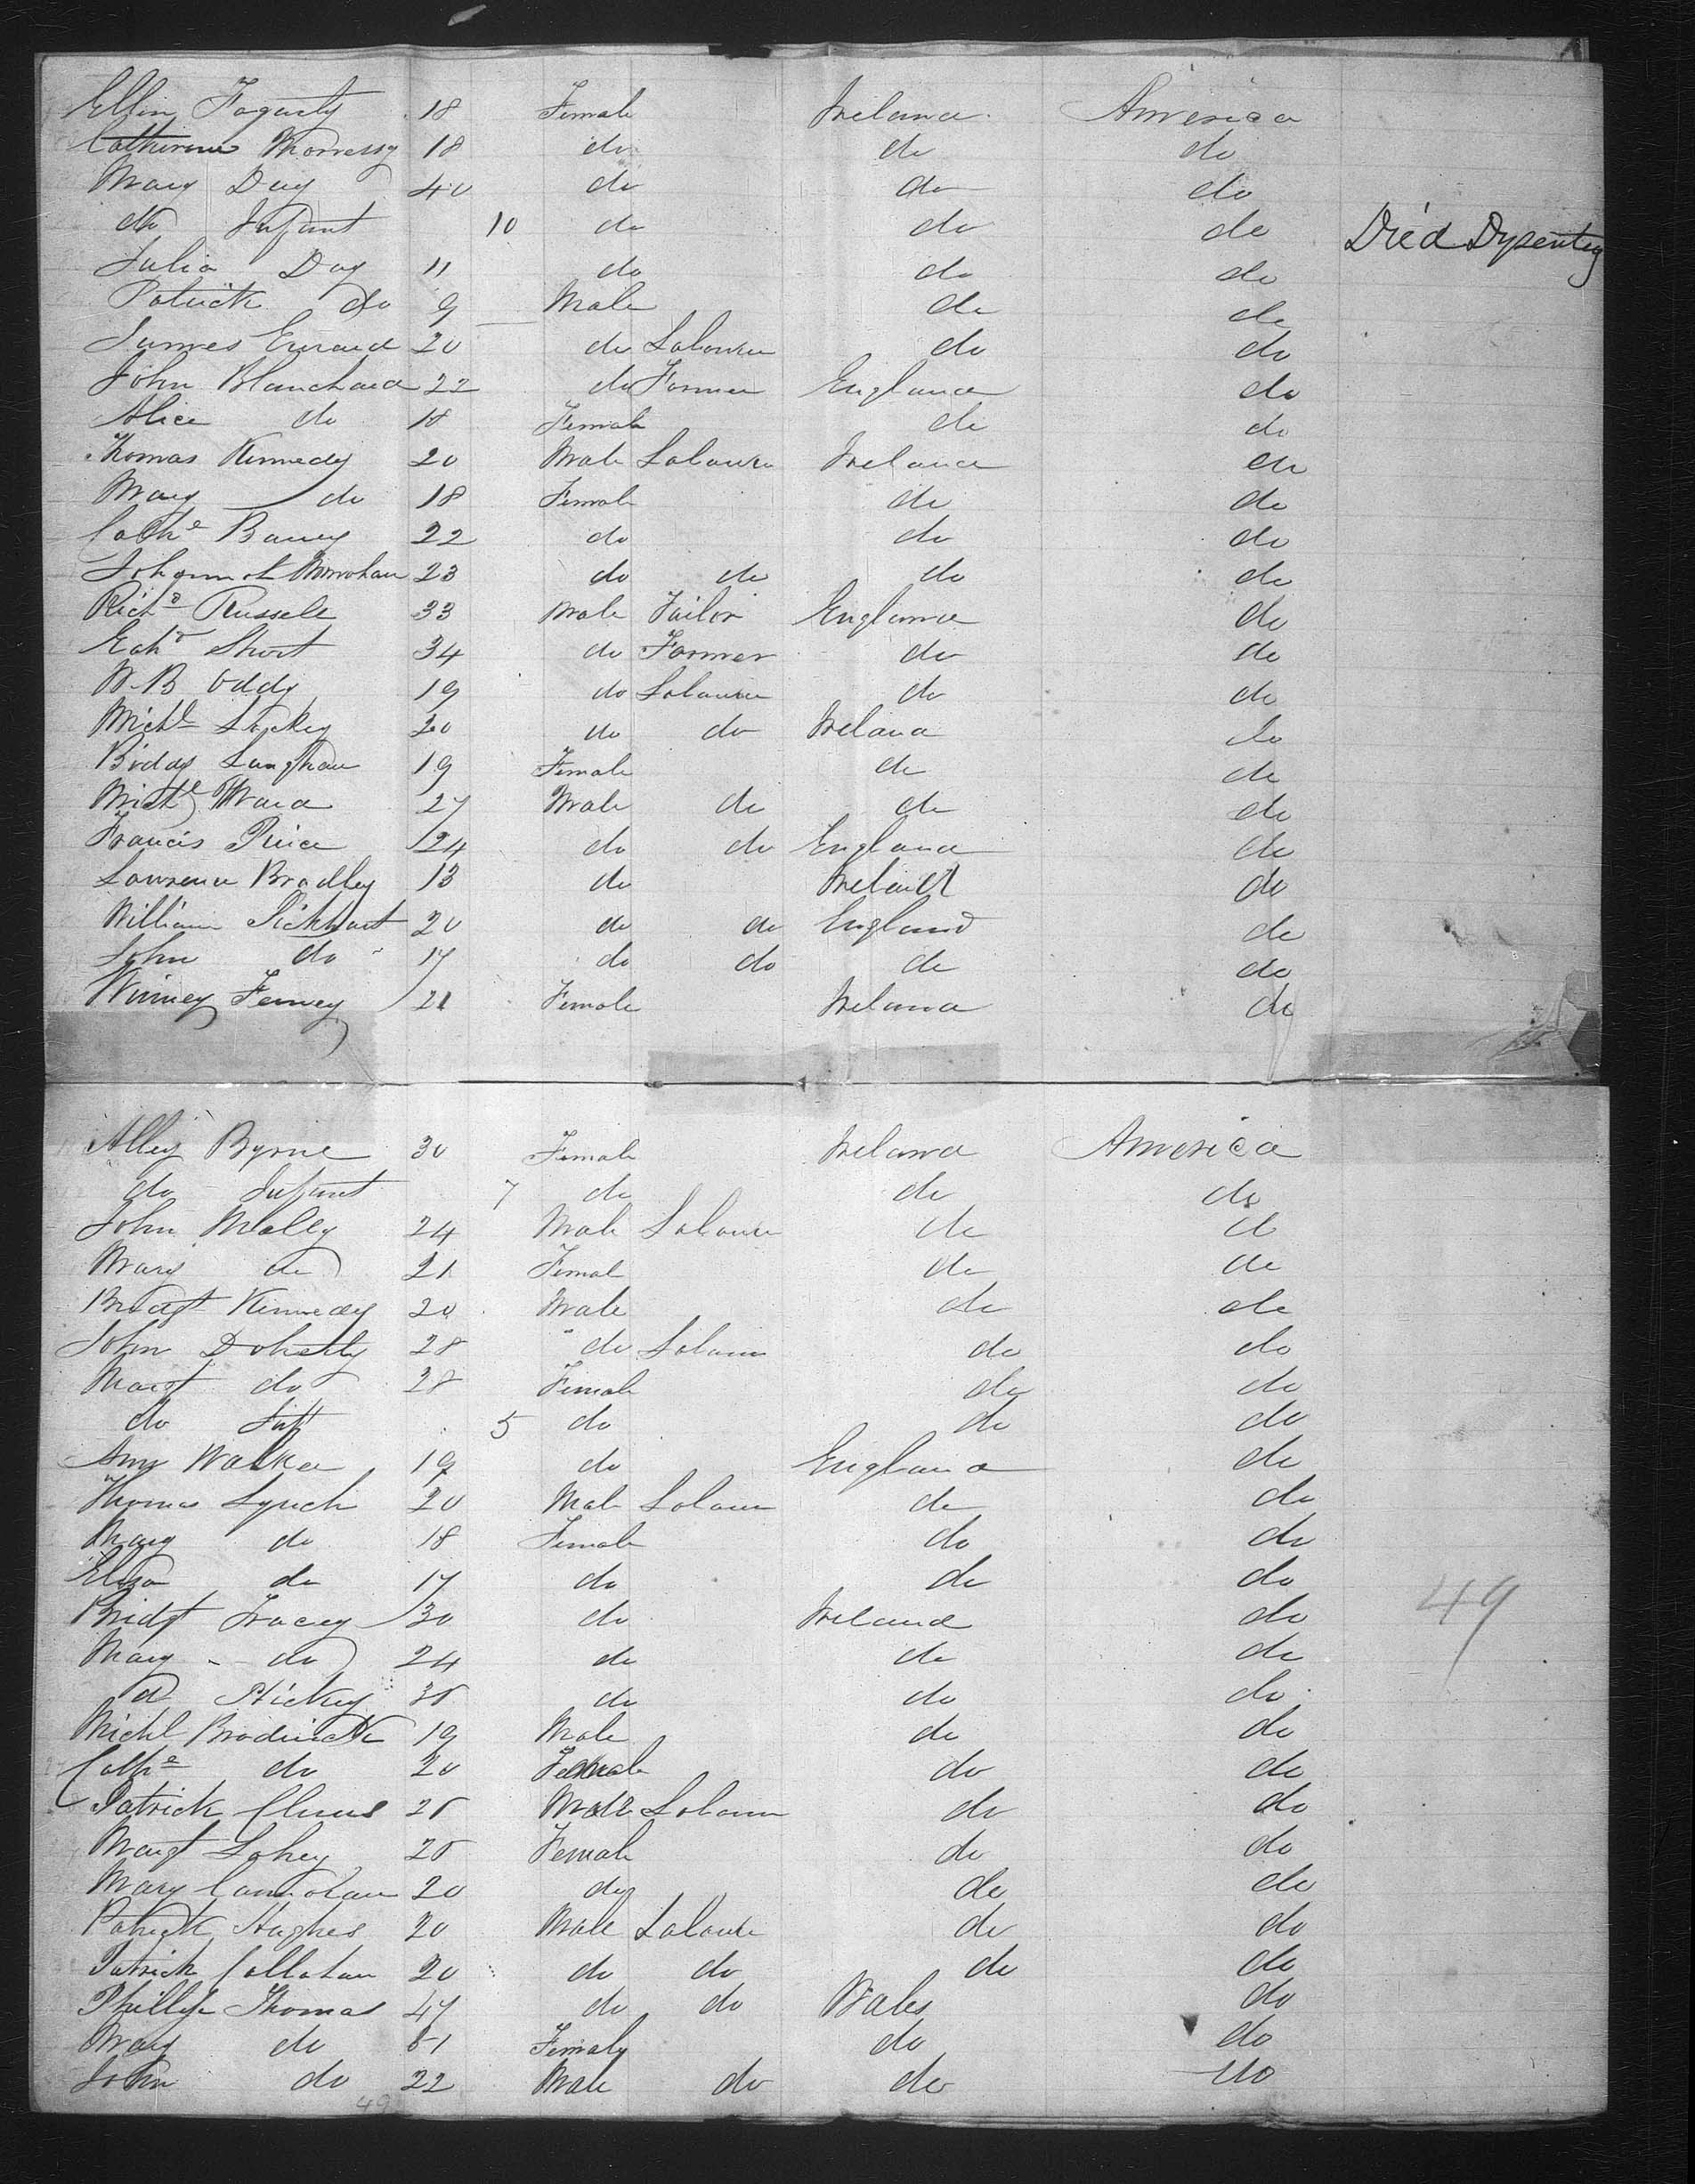 Ellin Fogarty 18 Female Ireland America
Catherine 18 do do do
Mary Day 40 do do do
do Infant 10 do do do Died Dysentery
Julia Day 11 do do do
Patrick do 9 Male do do
James 20 do Labourer do do
John Blanchard 22 do Farmer England do
Alice do 18 Female do do
Thomas Kennedy 20 Male Labourer Ireland do
Mary do 18 Female do do
Cathe 22 do do do
23 do do do do
Richd Russell 33 Male Tailor England do
Short 34 do Farmer do do
W.B Oddy 19 do Labourer do do
Michl 20 do do Ireland do
Biddy Langhan 19 Female do do
Michl Ward 27 Male do do do
Francis Price 24 do do England do
Lawrence Bradley 13 do Ireland do
William 20 do do England do
John do 17 do do do do
Winney Feeney 21 Female Ireland do
Alley Byrne 30 Female Ireland America
do Infant 7 do do do
John Mally 24 Male Labourer do do
Mary do 21 Femal do do
Bridgt Kennedy 20 Male do do
John Doherty 28 do Labourer do do
Margt do 28 Female do do
do Inft 5 do do do
Ann Walker 19 do England do
Thomas Lynch 20 Male Labourer do do
Mary do 18 Female do do
Eliza do 17 do do do
Bridgt Tracey 30 do Ireland do 49
Mary do 24 do do do
Hickey do do do
Michl Brodrick 19 Male do do
Cathe do 20 Female do do
Patrick Male Labourer do do
Margt Lahey Female do do
Mary 20 do do do
Patrick Hughes 20 Male Labourer do do
Patrick Callahan 20 do do do do
Phillip Thomas 47 do do Wales do
Mary do 51 Female do do
John do 22 Male do do do
49